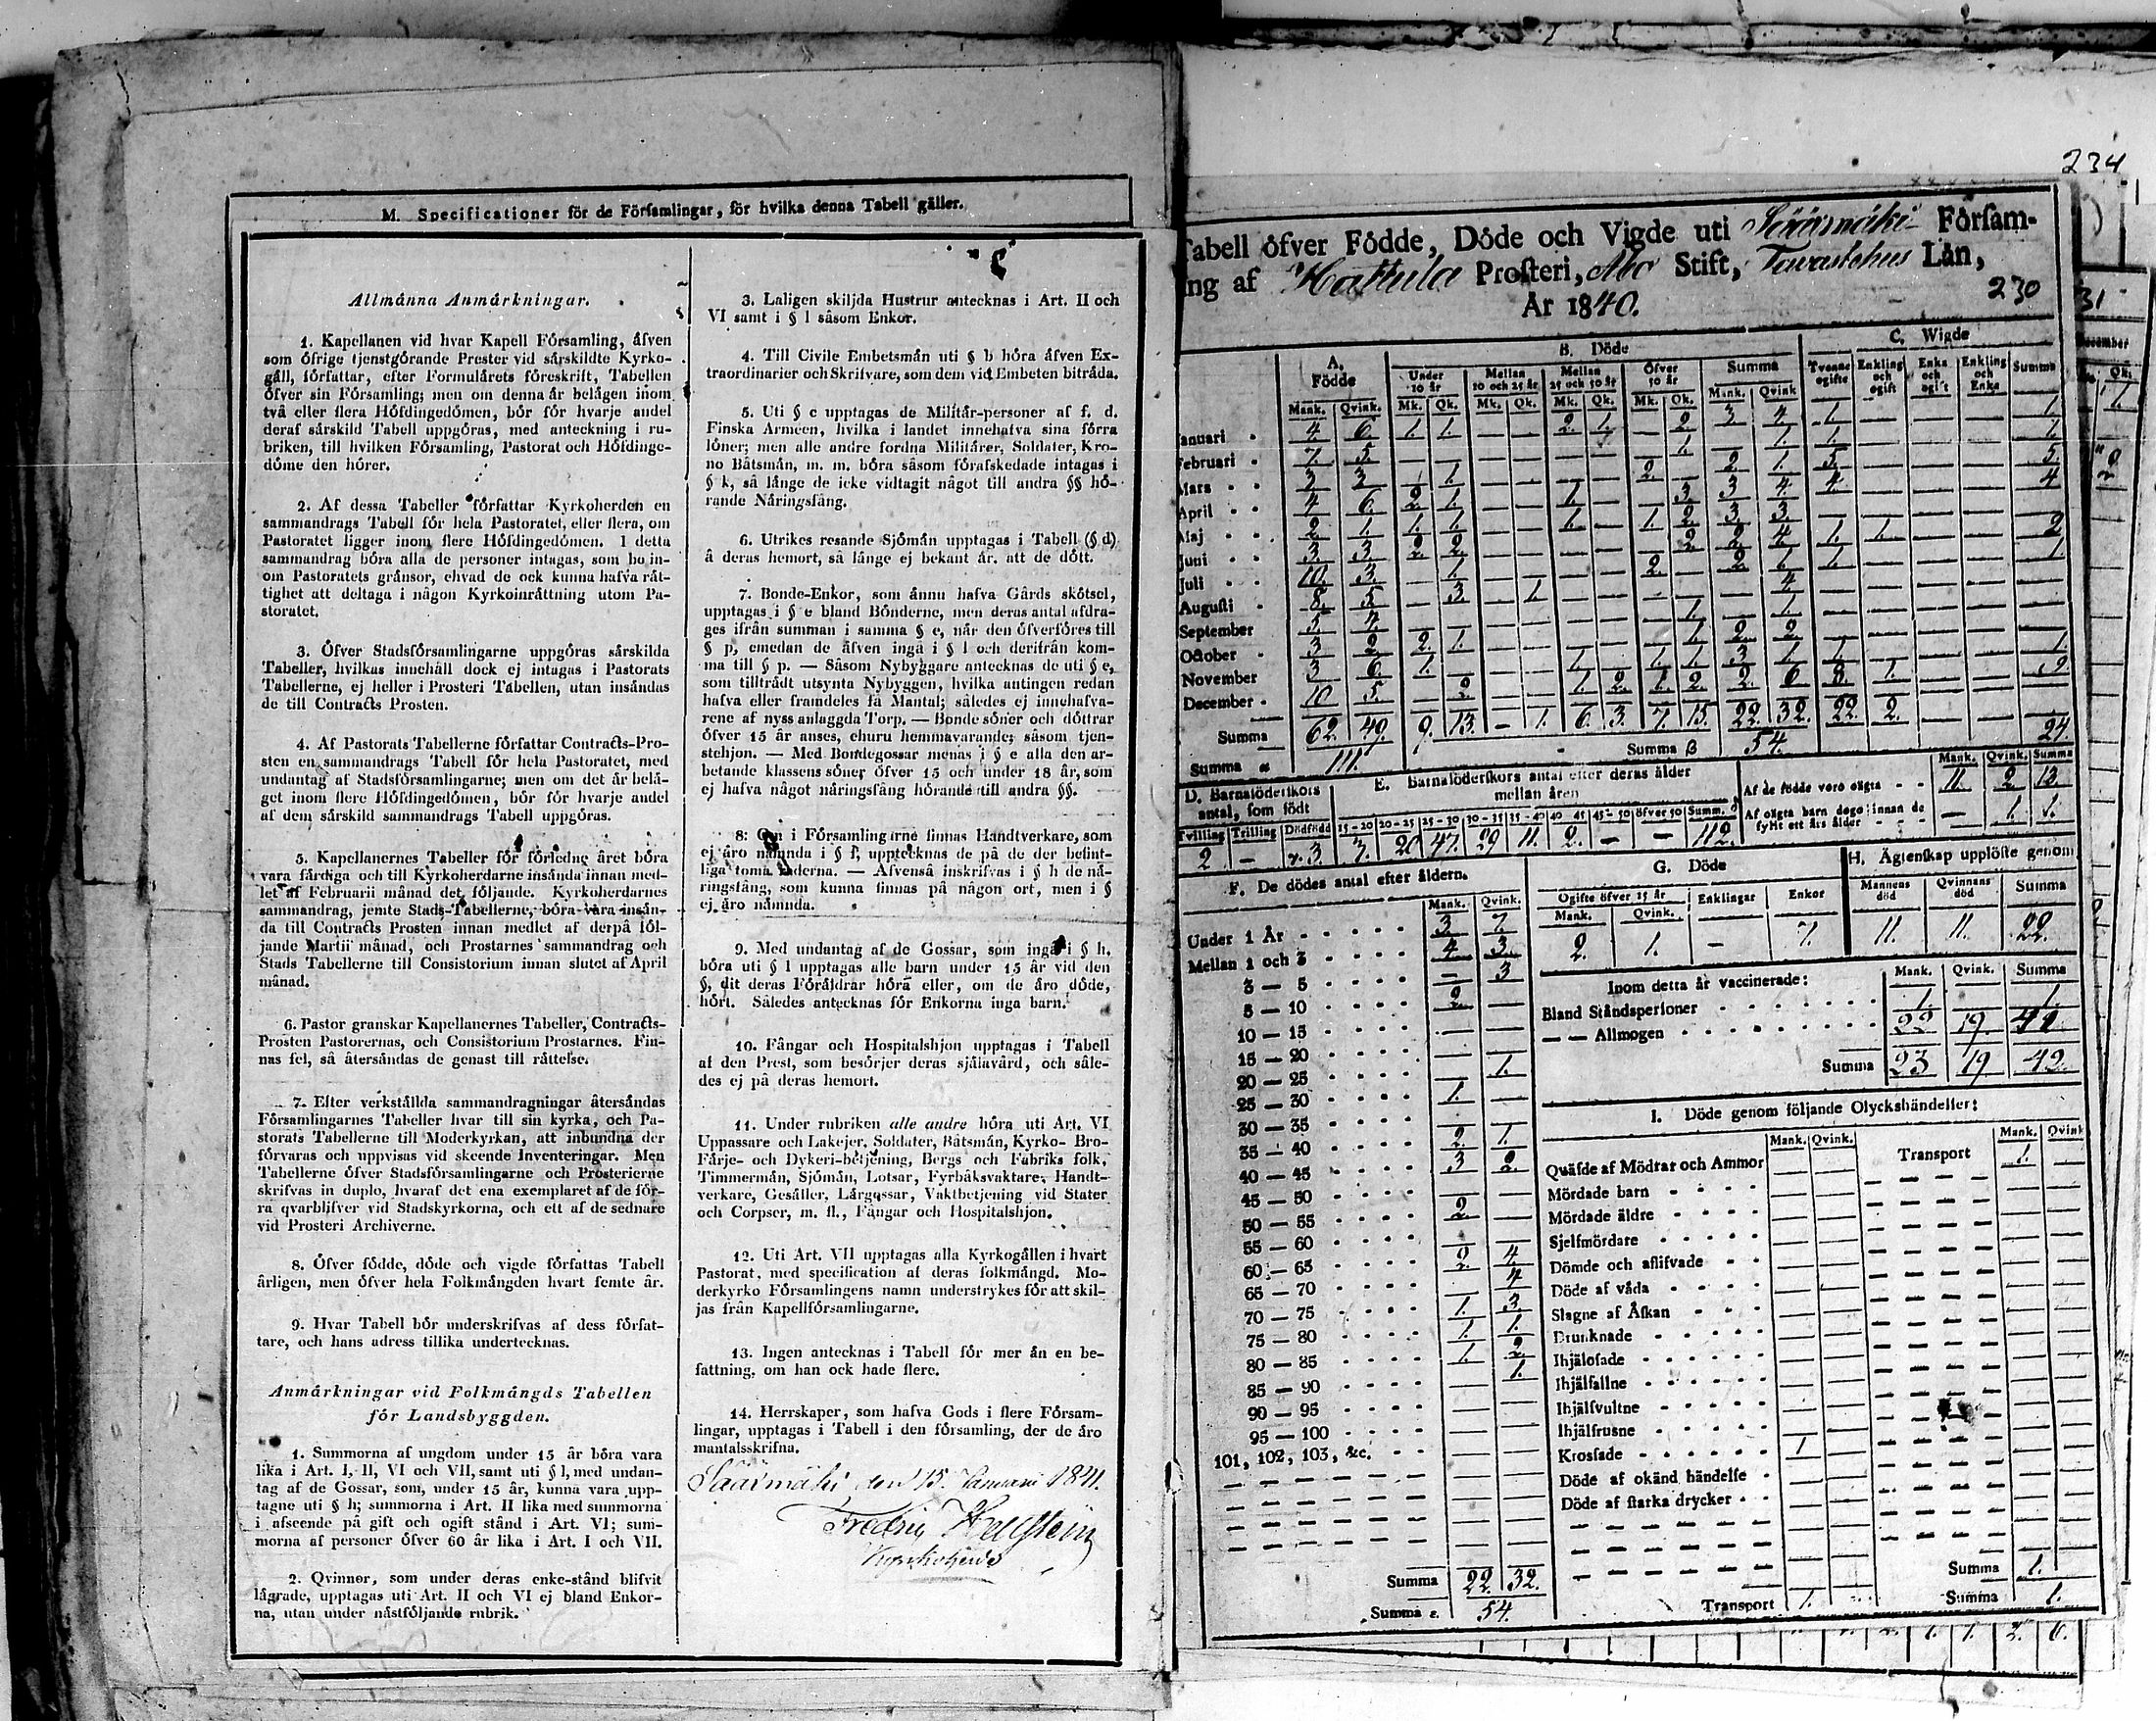 M. Specificationer för de Församlingar, för hvilka denna Tabell gäller.
Allmänna Anmärkningar.
1. Kapellanen vid hvar Kapell Församling, äfven
som öfrige tjenstgörande Prester vid särskildte Kyrko-
gäll, författar, efter Formulärets föreskrift, Tabellen
öfver sin Församling; men om denna är belägen inom
två eller flera Höfdingedömen, bör för hvarje andel
deraf särskild Tabell uppgöras, med anteckning i ru-
briken, till hvilken Församling, Pastorat och Höfdinge-
döme den hörer.
2. Af dessa Tabeller författar Kyrkoherden en
sammandrags Tabell för hela Pastoratet, eller flera, om
Pastoratet ligger inom flere Höfdingedömen. I detta
sammandrag böra alla de personer intagas, som bo in-
om Pastoratets gränsor, ehvad de ock kunna hafva rät-
tighet att deltaga i någon Kyrkoinrättning utom Pa-
storatet.
3. Öfver Stadsförsamlingarne uppgöras särskilda
Tabeller, hvilkas innehåll dock ej intages i Pastorats
Tabellerne, ej heller i Prosteri Tabellen, utan insändas
de till Contracts Prosten.
4. Af Pastorats Tabellerne författar Contracts-Pro-
sten en sammandrags Tabell för hela Pastoratet, med
undantag af Stadsförsamlingarne; men om det är belä-
get inom flere Höfdingedömen, bör för hvarje andel
af dem särskild sammandrags Tabell uppgöras.
5. Kapellanernes Tabeller för förledne året böra
vara färdiga och till Kyrkoherdarne insända innan med-
let af Februarii månad det följande. Kyrkoherdarnes
sammandrag, jemte Stads-Tabellerne, böra vara insän-
da till Contracts Prosten innan medlet af derpå föl-
jande Martii månad, och Prostarnes sammandrag och
Stads Tabellerne till Consistorium innan slutet af April
månad.
6. Pastor granskar Kapellanernes Tabeller, Contracts-
Prosten Pastorernas, och Consistorium Prostarnes. Fin-
nas fel, så återsändas de genast till rättelse.
7. Efter verkställda sammandragningar återsändas
Församlingarnes Tabeller hvar till sin kyrka, och Pa-
storats Tabellerne till Moderkyrkan, att inbundna der
förvaras och uppvisas vid skeende Inventeringar. Men
Tabellerne öfver Stadsförsamlingarne och Prosterierne
skrifvas in duplo, hvaraf det ena exemplaret af de för-
ra qvarblifver vid Stadskyrkorna, och ett af de sednare
vid Prosteri Archiverne.
8. Öfver födde, döde och vigde författas Tabell
årligen, men öfver hela Folkmängden hvart femte år.
9. Hvar Tabell bör underskrifvas af dess förfat-
tare, och hans adress tillika undertecknas.
Anmärkningar vid Folkmängds Tabellen
för Landsbyggden.
1. Summorna af ungdom under 15 år böra vara
lika i Art. I, II, VI och VII, samt uti § l, med undan-
tag af de Gossar, som, under 15 år, kunna vara upp-
tagne uti § h; summorna i Art. II lika med summorna
i afseende på gift och ogift stånd i Art. VI; sum-
morna af personer öfver 60 år lika i Art. I och VII.
2. Qvinnor, som under deras enke-stånd blifvit
lägrade, upptagas uti Art. II och VI ej bland Enkor-
na, utan under nästföljande rubrik.
3. Laligen skiljda Hustrur antecknas i Art. II och
VI samt i § l såsom Enkor.
4. Till Civile Embetsmän uti § b höra äfven Ex-
traordinarier och Skrifvare, som dem vid Embeten biträda.
5. Uti § c upptagas de Militär-personer af f. d.
Finska Arméen, hvilka i landet innehafva sina förra
löner; men alle andre fordna Militärer, Soldater, Kro-
no Båtsmän, m. m. böra såsom förafskedade intagas i
§ k, så länge de icke vidtagit något till andra §§ hö-
rande Näringsfång.
6. Utrikes resande Sjömän upptagas i Tabell (§ d)
å deras hemort, så länge ej bekant är, att de dött.
7. Bonde-Enkor, som ännu hafva Gårds skötsel,
upptagas i § e bland Bönderne, men deras antal afdra-
ges ifrån summan i samma § e, när den öfverföres till
§ p, emedan de äfven ingå i § l och derifrån kom-
ma till § p. — Såsom Nybyggare antecknas de uti § e,
som tillträdt utsynta Nybyggen, hvilka antingen redan
hafva eller framdeles få Mantal; således ej innehafva-
rene af nyss anlaggda Torp. — Bonde söner och döttrar
öfver 15 år anses, ehuru hemmavarande, såsom tjen-
stehjon. — Med Bondegossar menas i § e alla den ar-
betande klassens söner öfver 15 och under 18 år, som
ej hafva något näringsfång hörande till andra §§.
8. Om i Församlingarne finnas Handtverkare, som
ej äro nämnda i § f, upptecknas de på de der befint-
liga toma raderna. — Äfvenså inskrifvas i § h de nä-
ringsfång, som kunna finnas på någon ort, men i §
ej äro nämnda.
9. Med undantag af de Gossar, som ingå i § h,
böra uti § l upptagas alle barn under 15 år vid den
§, dit deras Föräldrar höra eller, om de äro döde,
hört. Således antecknas för Enkorna inga barn.
10. Fångar och Hospitalshjon upptagas i Tabell
af den Prest, som besörjer deras själavård, och såle-
des ej på deras hemort.
11. Under rubriken alle andre höra uti Art. VI
Uppassare och Lakejer, Soldater, Båtsmän, Kyrko- Bro-
Färje- och Dykeri-betjening, Bergs och Fabriks folk,
Timmermän, Sjömän, Lotsar, Fyrbåksvaktare, Handt-
verkare, Gesäller, Lärgossar, Vaktbetjening vid Stater
och Corpser, m. fl., Fångar och Hospitalshjon.
12. Uti Art. VII upptagas alla Kyrkogällen i hvart
Pastorat, med specification af deras folkmängd. Mo-
derkyrko Församlingens namn understrykes för att skil-
jas från Kapellförsamlingarne.
13. Ingen antecknas i Tabell för mer än en be-
fattning, om han ock hade flere.
14. Herrskaper, som hafva Gods i flere Församl-
ingar, upptagas i Tabell i den församling, der de äro
mantalsskrifna.
Sääxmäki den 15. Januari 1841.
Kyrkoherde
234
Tabell öfver Födde, Döde och Vigde uti Sääxmäki Försam-
ing af Hattula Prosteri, Åbo Stift, Tavastehus Län,
År 1840.
230
A. Födde B. Döde C. Wigde
Under 10 år Mellan 10 och 25 år Mellan 25 och 50 år Öfver 50 år Summa Tvenne ogifte Enkling och ogift Enka och ogift Enkling och Enka Summa
Mank. Qvink. Mk. Qk. Mk. Qk. Mk. Qk. Mk. Qk. Mank. Qvink
Januari 4. 6. 1. 1. — — 2. 1. — 2. 3. 4. 1. — — — 1.
Februari 7. 5. — — — — — — — 1. — 1. 1. — — — 1.
Mars 3 3 — 1. — — — — 2. — 2. 1. 5. — — — 5.
April 4 6. 2. 1. — — 1. — — 3. 3 4. 4. — — — 4
Maj 2. 1. 1. 1. — — 1. — 1. 2. 3. 3. — — — — —
Juni 3. 3 2. 2. — — — — — 2. 2. 4. 1. 1. — — 2
Juli 10. 3. — 1. — — — — 2. — 2. 1. 1. — — — 1.
Augusti 8. 5 — 3. — 1. — — — — — 4. — — — — —
September 5. 4. — — — — — — — 1. — 1. — — — — —
October 3 2. 2. 1. — — — — — 1. 2. 2. — — — — —
November 3 6. 1. — — — 1. — 1. 1. 3 1. 1. — — — 1.
December 10 5. — 2. — — 1. 2. 1. 2. 2. 6 8. 1. — — 9.
Summa 62. 49. 9. 13. — 1. 6. 3. 7. 15. 22. 32. 22. 2. — — 24
Summa α 111. Summa β 54.
D. Barnaföderskors antal, som födt
Tvilling Trilling Dödfödd
2 — 3.
E. Barnaföderskors antal efter deras ålder mellan åren
15—20 20—25 25—30 30—35 35—40 40—45 45—50 öfver 50 Summ.
3. 20 47. 29 11. 2. — — 112.
Mank. Qvink. Summa
Af de födde voro oägta 11. 2. 13.
Af oägta barn dogo innan de
fyllt ett års ålder — 1. 1.
F. De dödes antal efter åldern.
Mank. Qvink.
Under 1 År 3. 7.
Mellan 1 och 3 4 3.
3 — 5 — 3
5 — 10 2. —
10 — 15 — —
15 — 20 — —
20 — 25 — 1.
25 — 30 1. —
30 — 35 — —
35 — 40 2. 1.
40 — 45 3 2.
45 — 50 — —
50 — 55 2. —
55 — 60 — —
60 — 65 2. 4.
65 — 70 — 4
70 — 75 1. 3.
75 — 80 1. 1.
80 — 85 1. 2.
85 — 90 — 1.
90 — 95 — —
95 — 100 — —
101, 102, 103, &c. — —
Summa 22. 32.
Summa ε. 54.
G. Döde
Ogifte öfver 15 år Enklingar Enkor
Mank. Qvink.
2. 1. — 7.
H. Ägtenskap upplöste genom
Mannens död Qvinnans död Summa
11. 11. 22.
Inom detta år vaccinerade: Mank. Qvink. Summa
Bland Ståndspersoner 1. — 1.
— — Allmogen 22 19. 41
Summa 23 19. 42.
I. Döde genom följande Olyckshändelser:
Mank. Qvink. Transport Mank. Qvink
1. —
Quäfde af Mödrar och Ammor
Mördade barn
Mördade äldre
Sjelfmördare
Dömde och aflifvade
Döde af våda
Slagne af Åskan
Drunknade
Ihjälosade
Ihjälfallne
Ihjälsvultne
Ihjälfrusne
Krossade 1
Döde af okänd händelse
Döde af starka drycker
Summa 1.
Transport 1. Summa 1.